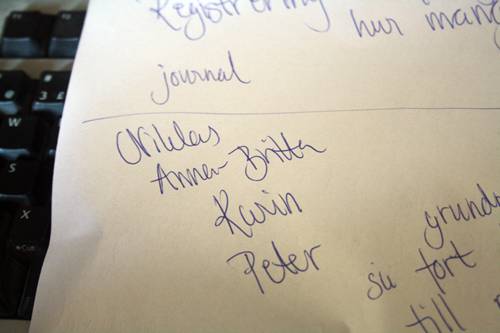 Registrering
hur mång
journal
Niklas
Anna-Britta
Karin
Peter
grund
så fort
till
W
S
X
3 £